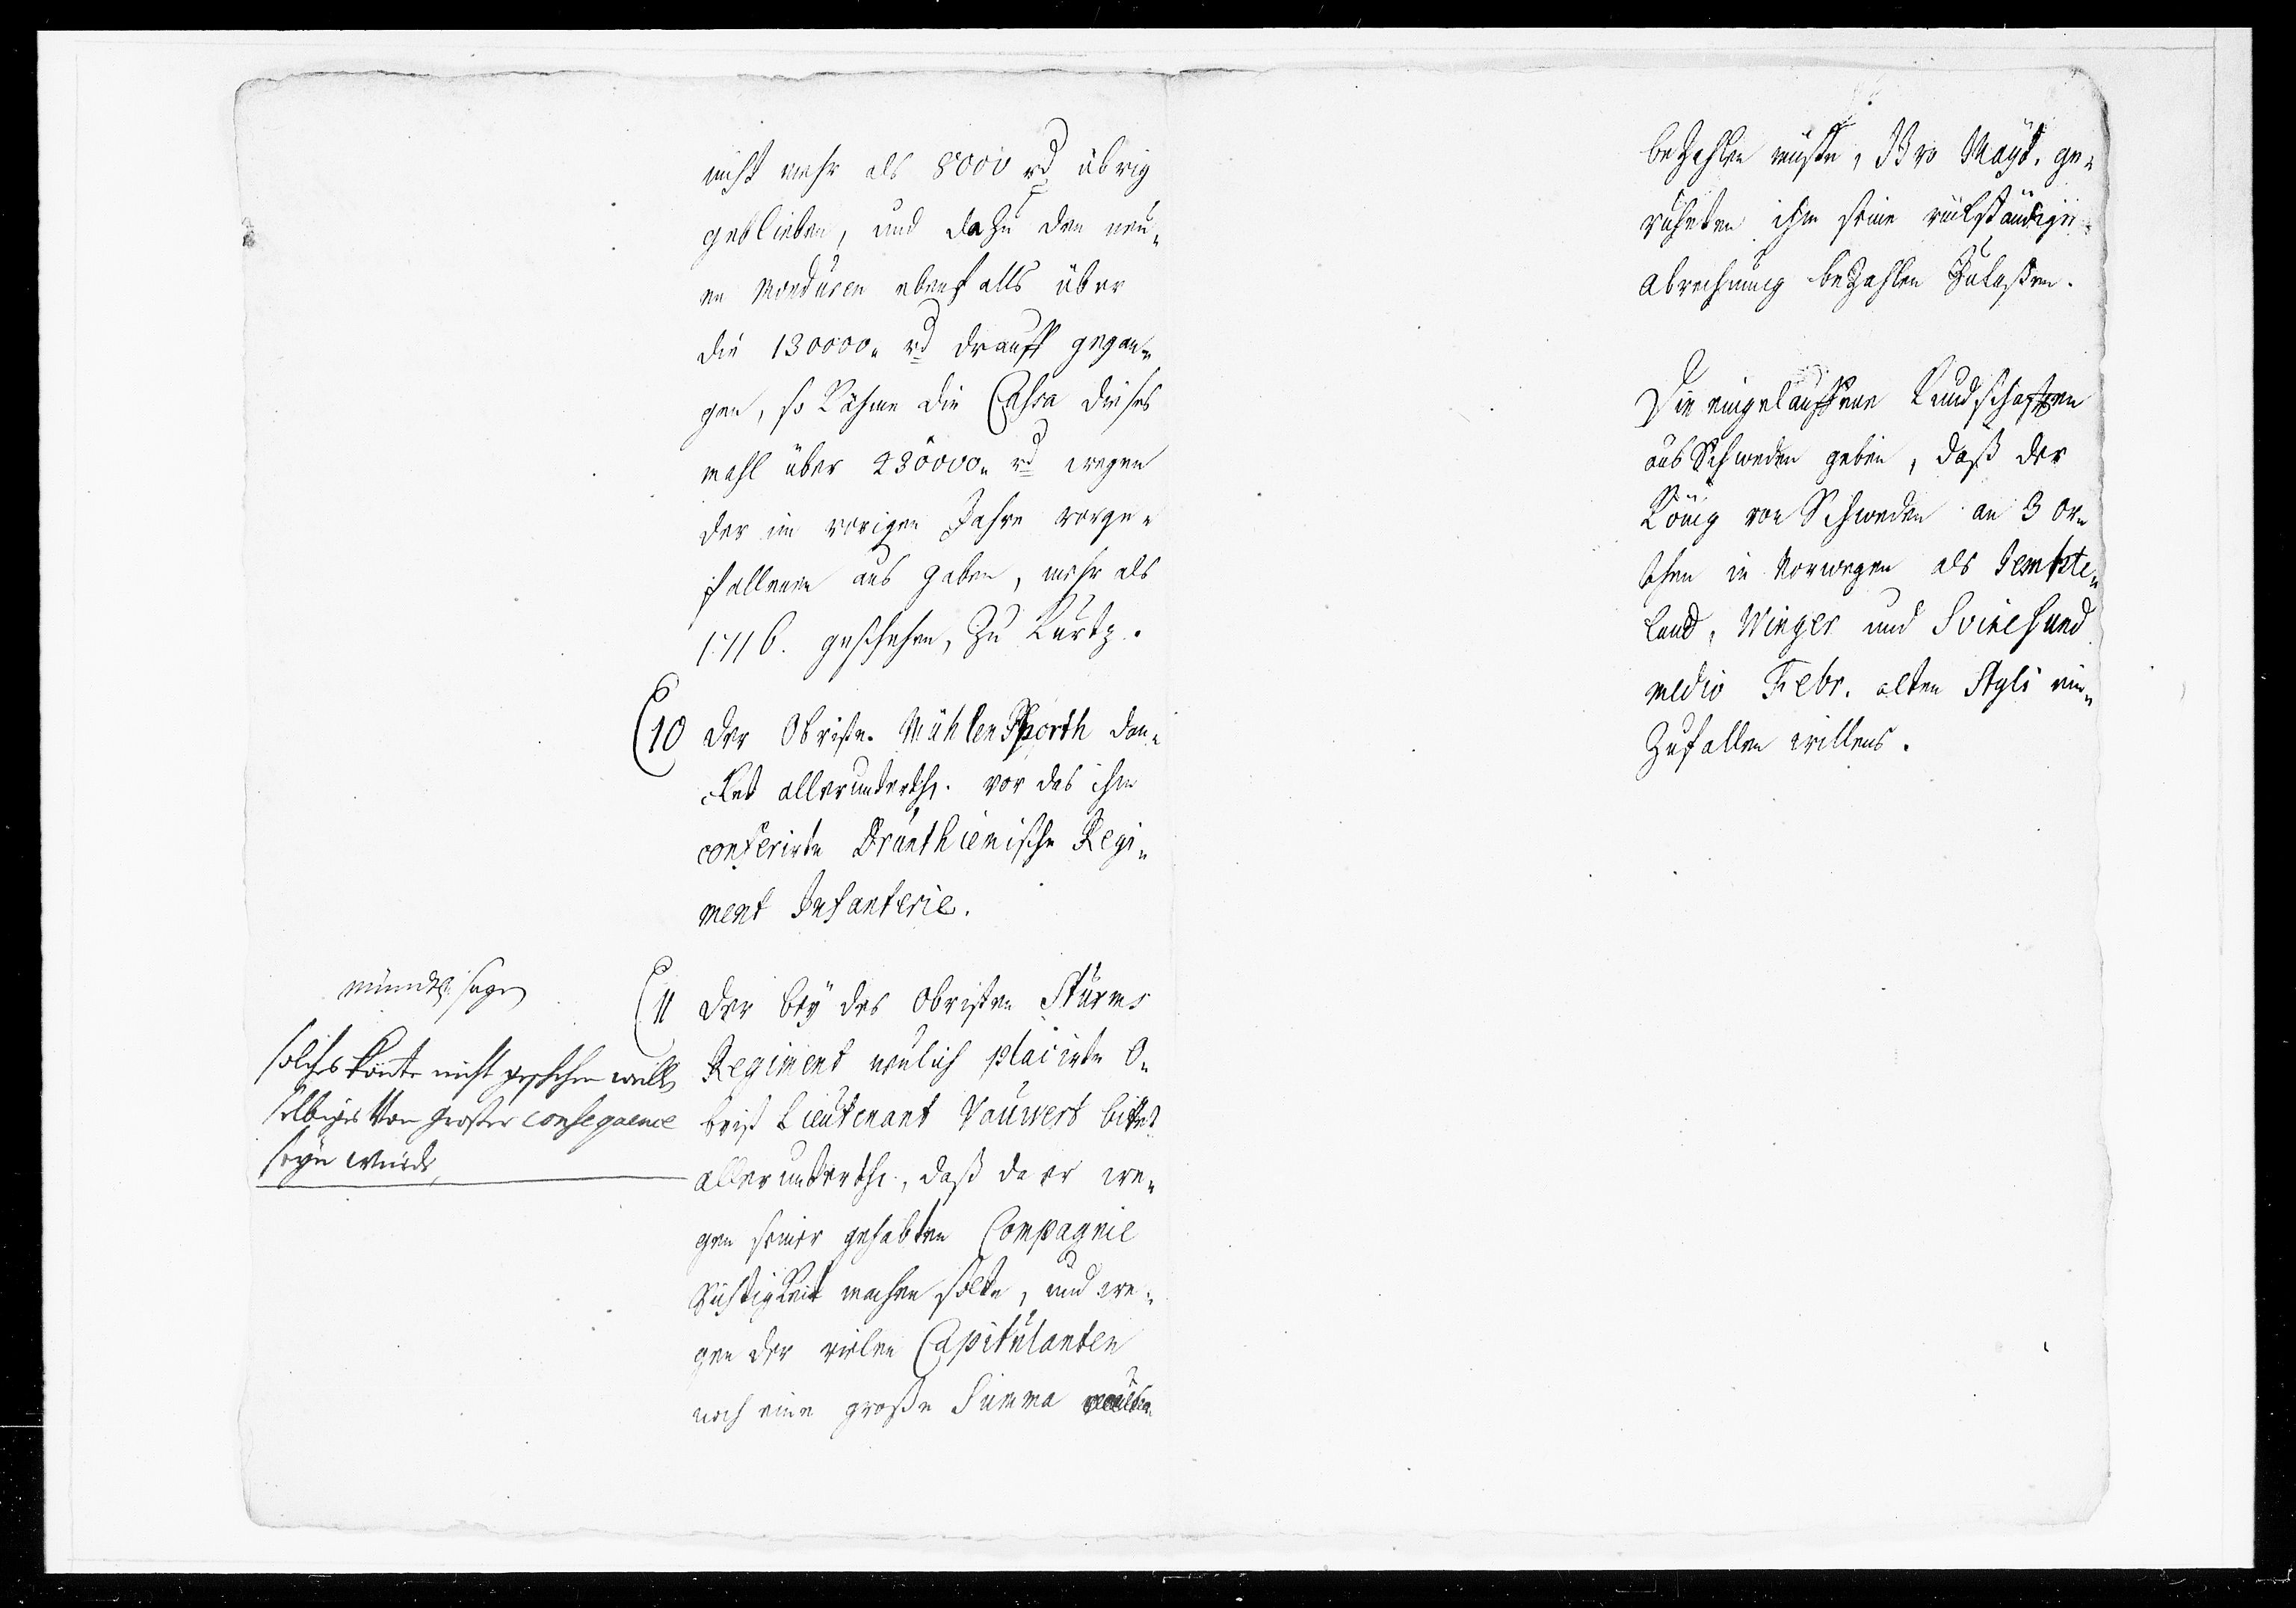 nicht mehr als 8000 rd übrig
geblieben, und dazu den neu-
en Monduren ebenfalls über
die 130000. rd drauff gegan-
gen, so kähme die Cassa dieses
mahl über 230000. rd wegen
der im vorigen Jahre vorge-
fallenen ausgaben, mehr als
1716. geschehen, zu kurtz.
10 Der Obriste Mühlenpforth dan-
ket allerunterth. vor das ihm
conferirte Drüntheimische Regi-
ment Infanterie.
mündtl. sage
solches könte nicht geschehen weill
selbiges von großer consequence
seyn würde,
11 Der bey des Obristen Stürms
Regiment neulich placirte O-
brist Lieutenant Vauwert bittet
allerunterth., daß da er we-
gen seiner gehabten Compagnie
Richtigkeit machen solte, und we-
gen der vielen Capitulanten
noch eine große Summa
bezahlen müste, Ihro Mayt. ge-
ruheten ihm seine rückständige
Abrechnung bezahlen zulaßen.
Die eingelauffene Kundschafften
aus Schweden geben, daß der
König von Schweden an 3 Or-
then in Norwegen als Jempte-
land, Winger und Svinesund
medio Febr. alten Styli ein-
zufallen willens.